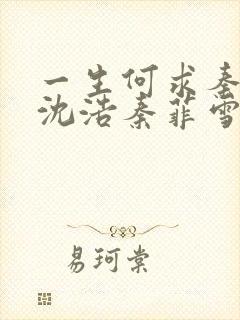 一生何求秦
沈浩秦菲雪
易珂棠